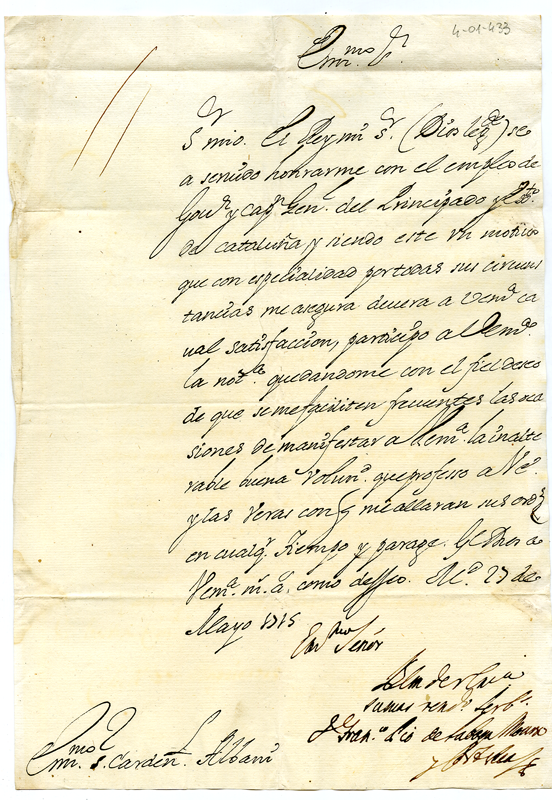 4-01-433
Em.mo S.r
S.r mio. El Rey mi S.r (Dios le g.de) se
a seruido honrarme con el empleo de
Gou.r y Cap.n Gen.l del Principado y
de Cataluña, y siendo este vn motiuo
que con especialidad por todas sus circuns
tancias me asegura deuera a Vem.a ca
ual satisfaccion, participo a Vem.a
la not.a quedandome con el fiel deseo
de que se me faciliten frecuentes las oca
siones de manifestar a Vem.a la inalte
rable buena volun.d que professo a V.e
y las veras con q me allaran sus ord.s
en cualq.r tiempo y parage. G.e Dios a
Vem.a m.s a.s como desseo. M.d 27 de
Mayo 1715
Em.mo Señor
Blm de V.Em.a
su mas rend.o serb.r
D.n Fran.co Pio de Saboya Moura
y
Em.mo S.r Carden.l Albani